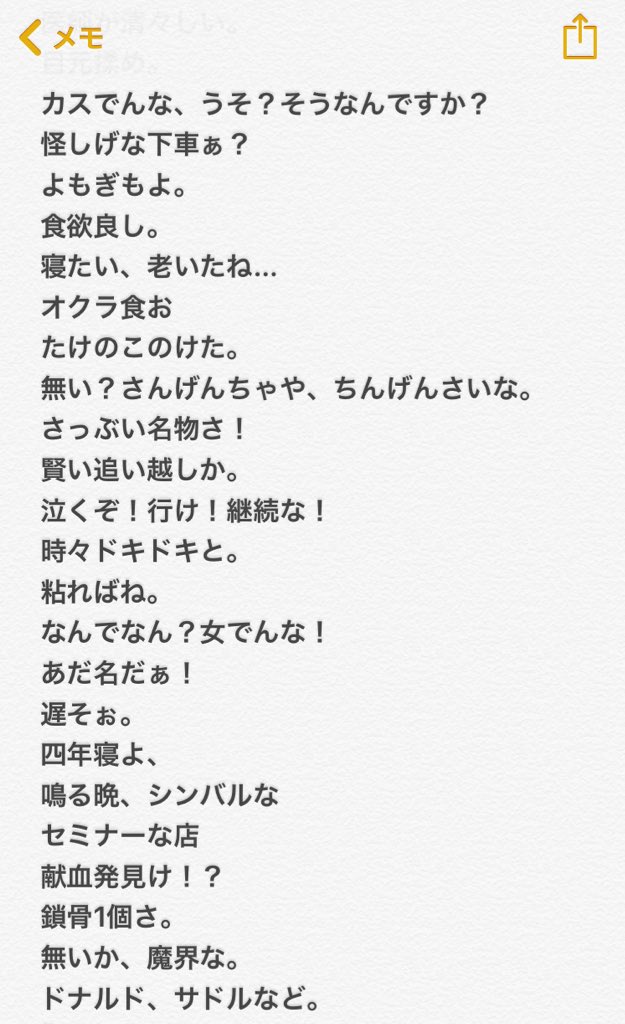 メモ
カスでんな、うそ？そうなんですか？
怪しげな下車ぁ？
よもぎもよ。
食欲良し。
寝たい、老いたね…
オクラ食お
たけのこのけた。
無い？さんげんちゃや、ちんげんさいな。
さっぶい名物さ！
賢い追い越しか。
泣くぞ！行け！継続な！
時々ドキドキと。
粘ればね。
なんでなん？女でんな！
あだ名だぁ！
遅そぉ。
四年寝よ、
鳴る晩、シンバルな
セミナーな店
献血発見け！？
鎖骨1個さ。
無いか、魔界な。
ドナルド、サドルなど。